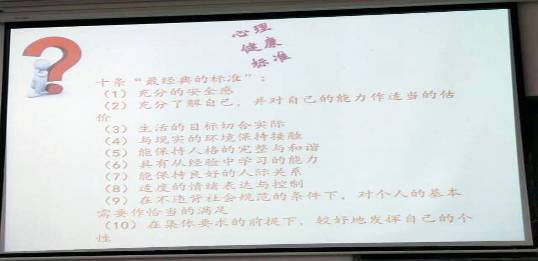 心理
健康
标准
十条“最经典的标准”：
（1）充分的安全感
（2）充分了解自己，并对自己的能力作适当的估
价
（3）生活的目标切合实际
（4）与现实的环境保持接触
（5）能保持人格的完整与和谐
（6）具有从经验中学习的能力
（7）能保持良好的人际关系
（8）适度的情绪表达与控制
（9）在不违背社会规范的条件下，对个人的基本
需要作恰当的满足
（10）在集体要求的前提下，较好地发挥自己的个
性